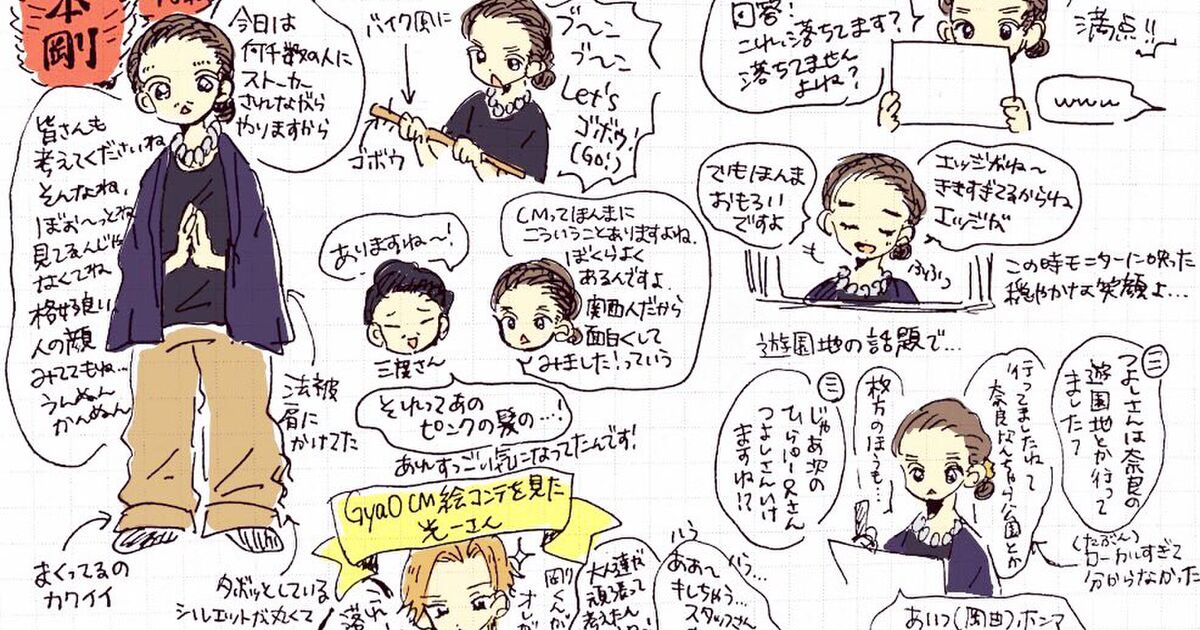 本
剛
今日は
何千数の人に
ストーカー
されながら
やりますから
皆さんも
考えてくださいね
そんなね、
ぼぉ〜っとね
見てるんじゃ
なくてね
格好良い
人の顔
みててもね…
うんぬん
かんぬん
法被
肩に
かけてた
まくってるの
カワイイ
ダボッとしている
シルエットが丸くて
バイク風に
ゴボウ
ブ〜ン
ブ〜ン
Let's
ゴボウ!
(GO!)
ありますね〜!
三度さん
CMってほんまに
こういうことありますよね。
ぼくらよく
あるんですよ
関西人だから
面白くして
みました!っていう
それってあの
ピンクの髪の…!
あれすっごい気になってたんです!
GyaO CM 絵コンテを見た
光一さん
剛くんが
オレが
大人達が
頑張って
考えたん
ああ〜
キしちゃう…
スタッフさん
回答!
これ、落ちてます?
落ちてません
よね?
満点!!
www
でもほんま
おもろい
ですよ
エッジがね〜
ききすぎてるからね
エッジが
ふふふっ
この時モニターに映った
穏やかな笑顔よ…
遊園地の話題で…
三
つよしさんは奈良の
遊園地とか行って
ました?
行ってましたね
奈良なんちゃら公園とか
枚方のほうも…
三
じゃあ次の
ひらパー兄さん
つよしさんいけ
ますね!?
(たぶん)
ローカルすぎて
分からなかった
あいつ(岡田)ホンマ